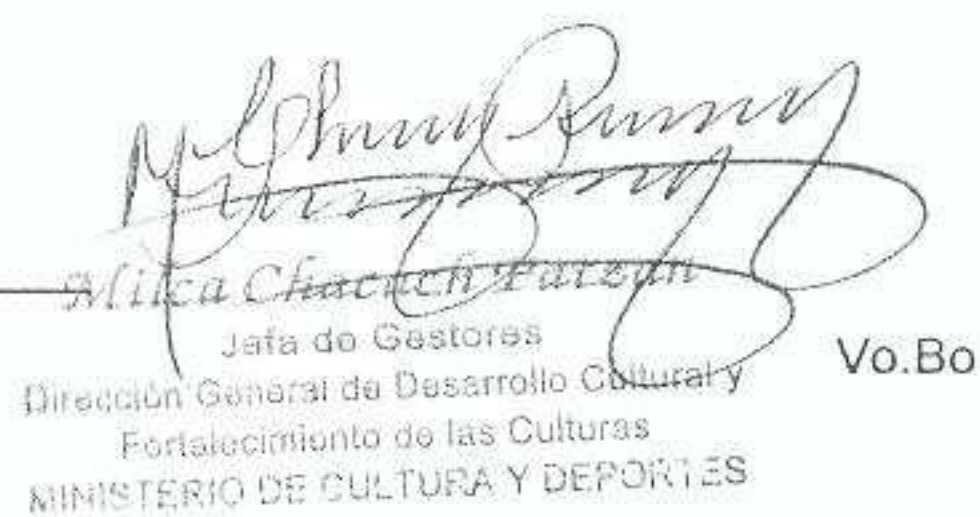 Milca Chacach Patzán
Jefa de Gestores
Vo.Bo
Dirección General de Desarrollo Cultural y
Fortalecimiento de las Culturas
MINISTERIO DE CULTURA Y DEPORTES